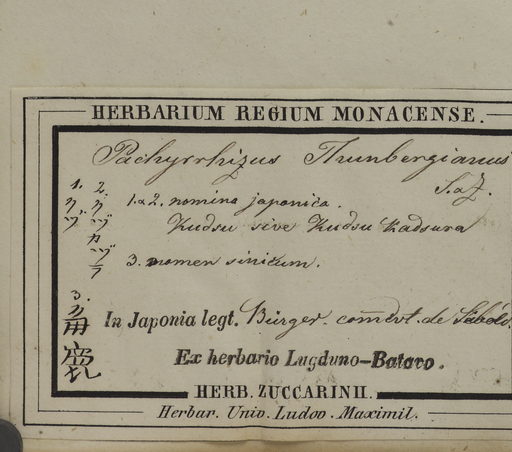 HERBARIUM REGIUM MONACENSE.
Pachyrrhizus Thunbergianus
S. a Z.
1. 2.
1. a 2. nomina japonica.
Kudsu sive Kudsu Kadsura
クヅ
クヅカヅラ
3. nomen sinicum.
3.
In Japonia legt. Bürger. com̄evt. de Siebold.
Ex herbario Lugduno-Batavo.
HERB. ZUCCARINII.
Herbar. Univ. Ludov. Maximil.